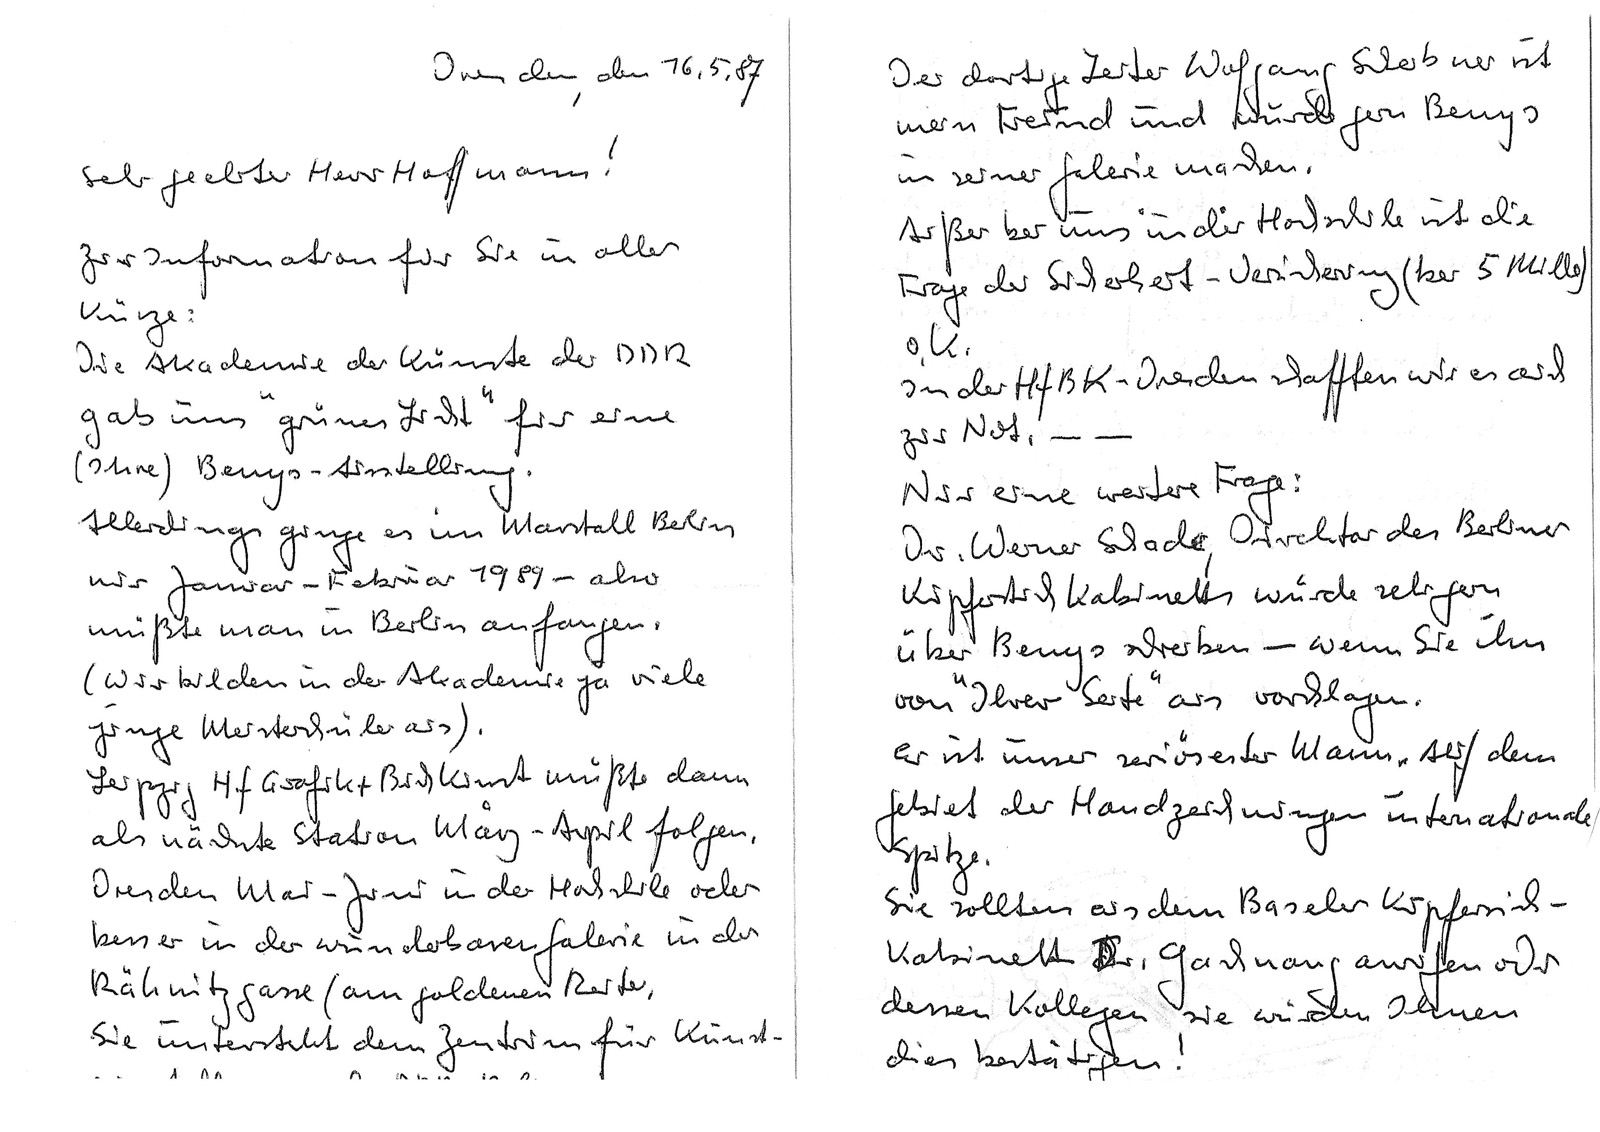 Dresden, den 16.5.87
Sehr geehrter Herr Hoffmann!
Zur Information für Sie in aller
Kürze:
Die Akademie der Künste der DDR
gab uns "grünes Licht" für eine
(Ihre) Beuys-Ausstellung.
Allerdings ginge es im Marstall Berlin
nur Januar-Februar 1989 - also
müßte man in Berlin anfangen.
(Wir bilden in der Akademie ja viele
junge Meisterschüler aus).
Leipzig Hf Grafik + Buchkunst müßte dann
als nächste Station März-April folgen.
Dresden Mai-Juni in der Hochschule oder
besser in der wunderbaren Galerie in der
Rähnitzgasse (am goldenen Reiter,
Sie untersteht dem Zentrum für Kunst-
Der dortige Leiter Wolfgang Scheibner ist
mein Freund und würde gern Beuys
in seiner Galerie machen.
Außer bei uns in der Hochschule ist die
Frage der Sicherheit-Versicherung (bei 5 Mille)
o.K.
In der HfBK-Dresden schafften wir es auch
zur Not. — —
Nur eine weitere Frage:
Dr. Werner Schade, Direktor des Berliner
Kupferstich Kabinetts würde sehr gern
über Beuys schreiben — wenn Sie ihn
von "Ihrer Seite" aus vorschlagen.
Er ist unser seriösester Mann. Auf dem
Gebiet der Handzeichnungen internationale
Spitze.
Sie sollten aus dem Baseler Kupferstich-
Kabinett Dr. Gachnang anrufen oder
dessen Kollegen sie würden Ihnen
dies bestätigen!